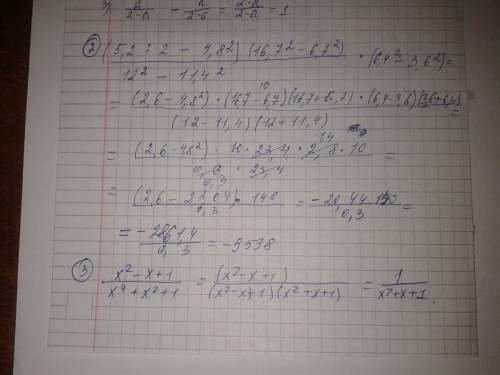 2 (5,2 : 2 − 4,8²)(16,7² − 6,7²) / 12² − 11,4² · (6,4² − 3,6²) =
= (2,6 − 4,8²) · (16,7 − 6,7)(16,7 + 6,7) · (6,4 − 3,6)(3,6 + 6,4) / (12 − 11,4)(12 + 11,4) =
= (2,6 − 4,8²) · 10 · 23,4 · 2,8 · 10 / 0,6 · 23,4 =
= (2,6 − 23,04) · 140 / 0,3 = −20,44 · 140 / 0,3 =
= −2861,4 / 0,3 = −9538
3 x² − x + 1 / x⁴ + x² + 1 = (x² − x + 1) / (x² − x + 1)(x² + x + 1) = 1 / x² + x + 1